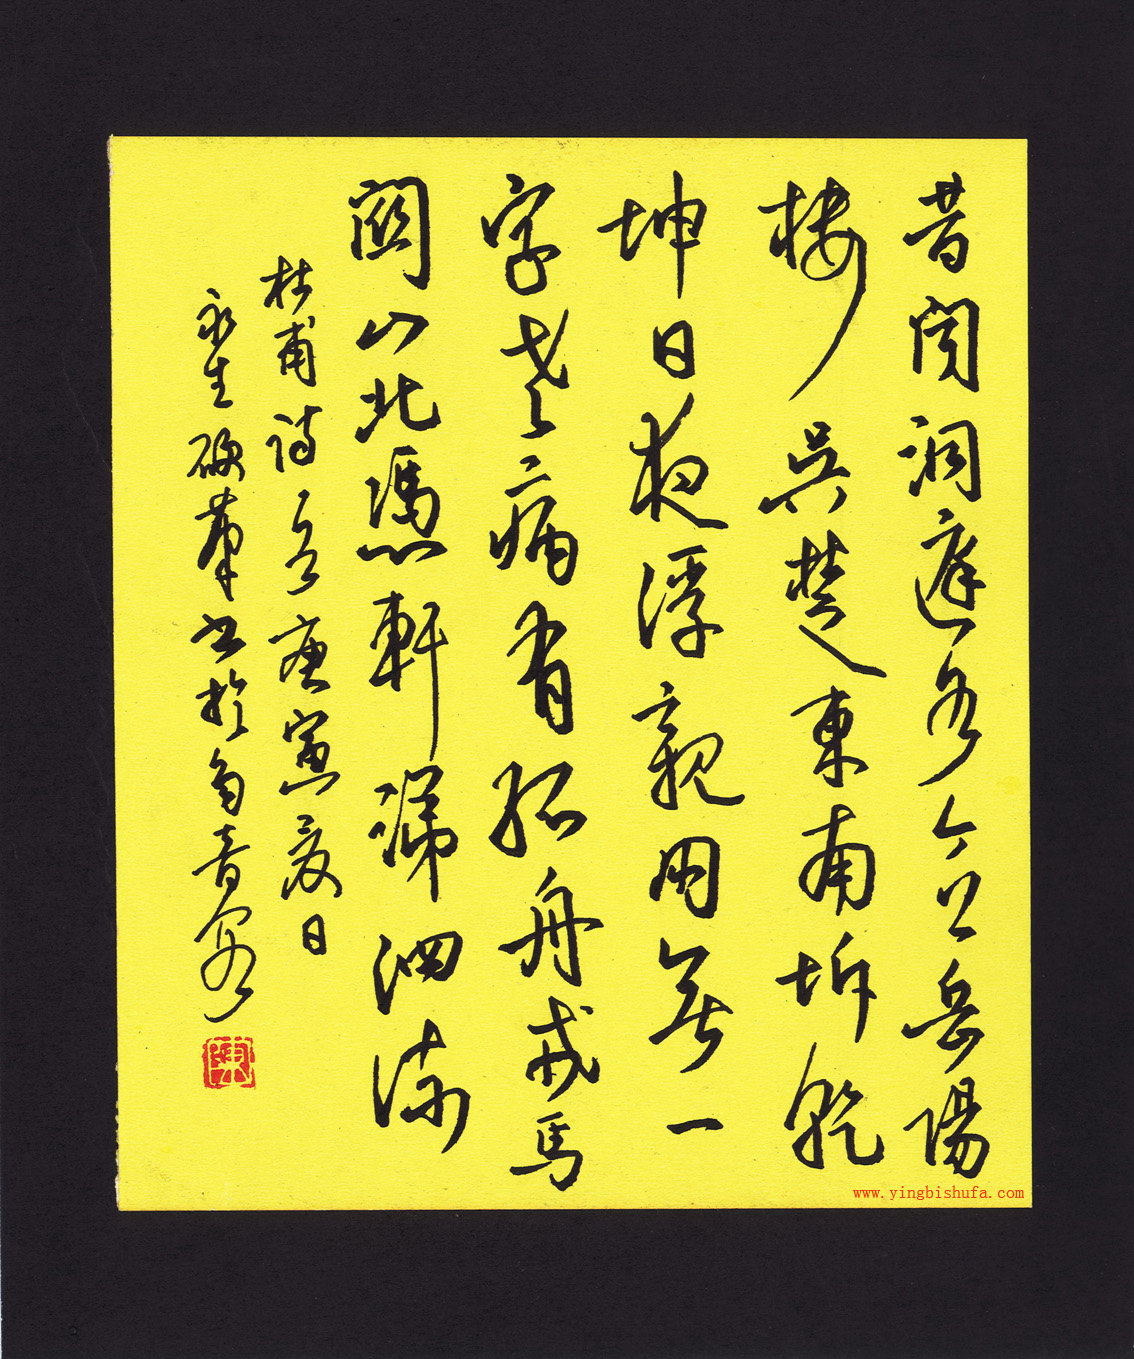 昔闻洞庭水今上岳陽
楼吴楚東南坼乾
坤日夜浮親朋無一
字老病有孤舟戎馬
關山北憑軒涕泗流
杜甫詩一首庚寅夏日
永生硬筆書於
www.yingbishufa.com